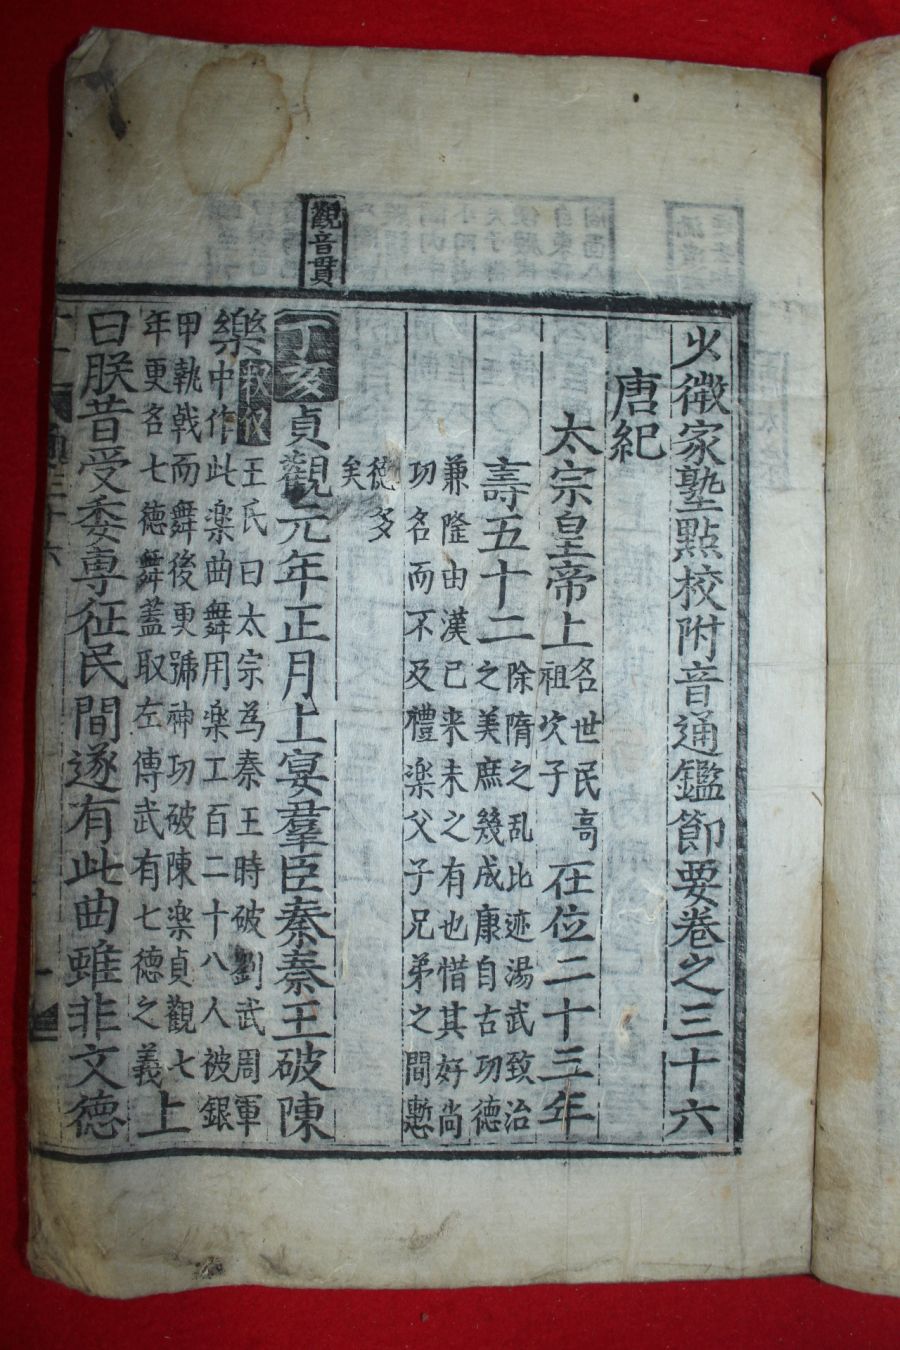 觀音貫
少微家塾點校附音通鑑節要卷之三十六
唐紀
太宗皇帝上 名世民高祖次子 在位二十三年
壽五十二 除隋之乱比迹湯武致治之美庶幾成康自古功德
兼隆由漢已来未之有也惜其好尚功名而不及禮楽父子兄弟之間慙
德多矣
丁亥貞觀元年正月上宴羣臣奏秦王破陳
樂 釈义 王氏曰太宗为秦王時破劉武周軍中作此楽曲舞用楽工百二十八人被銀
甲執戟而舞後更號神功破陳楽貞觀七年更名七德舞蓋取左傳武有七德之義 上
曰朕昔受委専征民間遂有此曲雖非文德